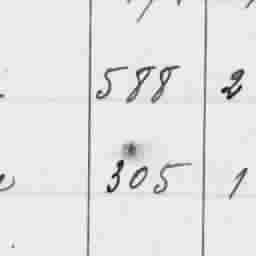 588 2
305 1